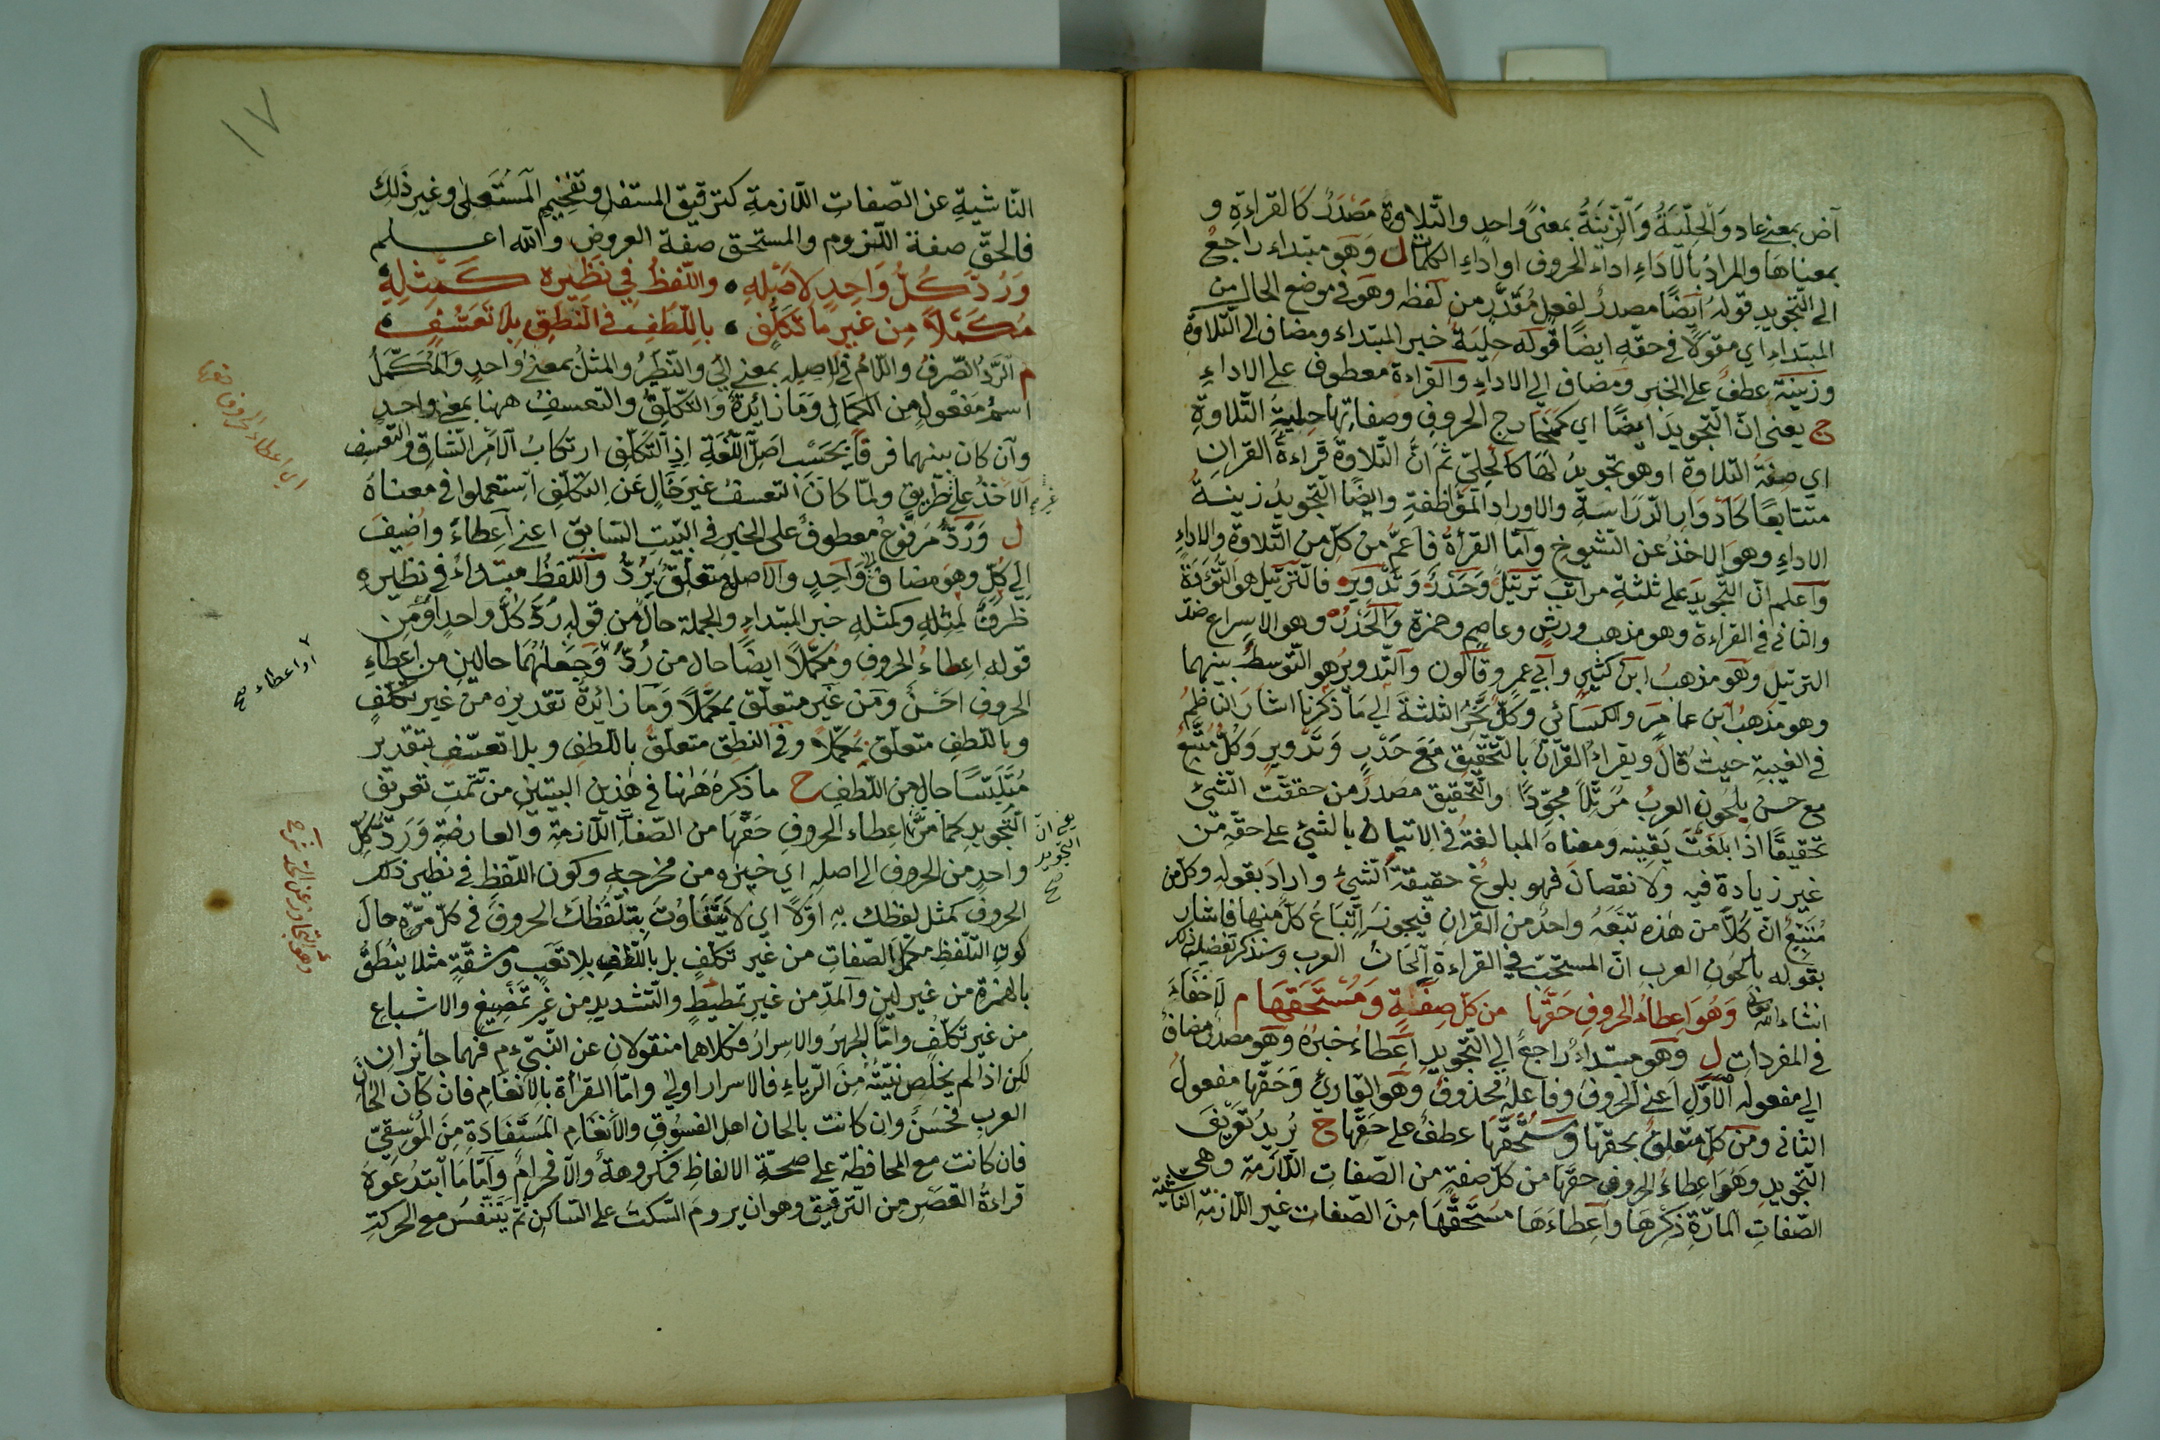 آض بمعنى عاد وَالْحِلْيَةُ وَالزِّينَةُ بمعنًى واحدٍ والتّلاوة مَصْدَرٌ كالقراءةِ و
بمعناها والمرادُ بالاَدَاءِ اداءُ الحروف او اداءِ الكلمات ل وَهُوَ مبتداء راجعٌ
الى التّجويدِ قولهُ ايضًا مصدرٌ لفعلٍ مُقَدَّرٍ من لفظه وهو في موضع الحال من
المبتداءِ اي مقولًا في حقّهِ ايضًا قوله حِلْيَةُ خبر المبتداء ومضاف الى التّلاوة
وزينَة عطفٌ على الخبر ومضاف الى الاداءِ وَالقراءة معطوف على الاداءِ
ح يعنى انّ التّجويدَ ايضًا اي كمخارج الحروفِ وصفاتِها حِليةُ التّلاوةِ
اي صفةُ التلاوة او هو تجويدٌ لَهَا كالحِلِيّ ثمّ انّ التّلاوةَ قراءةُ القران
متتابعًا كاَدوَارِ الدّرَاسَةِ والاوراد المؤظّفةِ وايضًا التّجويدُ زينةُ
الاداءِ وهو الاخذُ عن الشيوخِ وامّا القرأةُ فاعمُّ من كلّ من التّلاوة والاداءِ
واعلم انّ التّجويدَ على ثلثةِ مراتبَ ترتيلٌ وَحَدْرٌ وَتَدْوِيرٌ فالترتيل هو التُّؤَدَةُ
والتانى في القراءة وهو مذهب ورشٍ وعاصمٍ وحمزة وَالْحَدْرُ وهو الاسراع ضدّ
الترتيلِ وَهُوَ مذهبُ ابن كثيرٍ وابي عمرٍو وقالون والتّدويرُ هو التّوسّط بينهما
وهو مذهبُ ابن عامرَ والكسائي وكلٌّ يَجُرُّ الثلثةَ الى مَا ذكرنا اشارَ النّاظمُ
في الطيبة حيثُ قالَ ويقراءُ القرآنُ بالتّحقيق مَعَ حَدْرٍ وَتَدْويرٍ وَكُلٌّ مُتَّبَعٌ
مع حسن بلحون العربْ مُرتّلًا مجوّدًا والتّحقيق مصدرٌ من حققت الشّيْئَ
تحقيقًا اذا بلغتَ يَقِينه ومعناهُ المبالغةُ في الاتيان بالشيئ على حقّه من
غير زيادة فيه ولا نقصانَ فهو بلوغُ حقيقةِ الشيْءِ وارادَ بقولهِ وكل من
مُتّبَعٌ انّ كلًّا من هذه تتبّعَهُ واحدٌ من القران فيجوزُ اتّباعُ كلٍّ منها فاشار
بقوله بلحون العربِ انّ المستحبّ في القراءة اَلْحَان العرب وسنذكر تفصيل ذلك
انشاء الله تعالى وَهُوَ اِعطاءُ الحروفِ حَقَّهَا من كلّ صِفَةٍ وَمُسْتَحَقَّهَا م لاخفاءَ
في المفردات ل وهو مبتداءٌ راجعٌ الى التّجويدِ اعطاءُ خبرُهُ وَهو مصدرٌ مضافٌ
الى مفعولهِ الاوّل اعنى الحروفَ وفاعلُه محذوفٌ وهو القارئُ وَحَقَّها مفعولُ
الثانى ومن كلّ متعلّقٌ بحقّها وَمستحقّها عطفٌ على حَقّها ح يُريدُ تعريفَ
التّجويدِ وَهُوَ اعطاءُ الحروفِ حقّها من كلّ صفةٍ من الصّفاتِ اللّازمةِ وهى
الصّفاتِ المارّةِ ذكرها واِعطاءَهَا مستحَقّهَا مِنَ الصّفات غير اللّازمةِ الناشية
١٧
النّاشيةِ عن الصّفاتِ اللّازمةِ كترقيق المستفلِ وتفخيمِ المُسْتَعلى وغير ذلك
فالحقّ صفة اللّزوم والمستحق صفة العروض والله اعلم
وَرَدُّ كُلِّ وَاحِدٍ لاَصْلِهِ • واللّفظُ في نَظيرهِ كَمِثْلِهِ
مُكَمَّلًا مِن غيرِ ما تَكلُّفٍ • باللُّطفِ في النُّطقِ بلا تَعَسُّفٍ
م الرّدُّ الصّرفُ واللّامُ في لاصله بمعنى الى والنّظيرُ والمثلُ بمعنًى واحدٍ وَالمكمّلُ
اسمُ مفعولٍ من الكمالِ وَمَا زائدةٌ والتّكلّفُ والتعسفُ ههنا بمعنى واحدٍ
وان كان بينهما فرقًا بحسب اصل اللّغةِ اذِ التّكلّف ارتكابُ الامرِ الشاقِ والتعسف
الاخذُ على غير طريقٍ ولمّا كانَ التعسفُ غيرَ خالٍ عَنِ التكلّفِ استعملوا في معناهُ
ل وَرَدُّ مَرفوعٌ معطوفٌ على الخبر في البيتِ السّابقِ اعنى اعطاءُ واُضيفَ
الى كلّ وهو مضافٌ الى واحدٍ والاصلِ متعلّقٌ بِرَدُّ واللّفظُ مبتداءٌ في نظيرهِ
ظرفٌ لمثلهِ وكمثلهِ خبر المبتداءِ والجملة حالٌ من قولهِ رَدُّ كلّ واحدٍ اَوْ مِنْ
قولهِ اعطاءُ الحروفِ ومكمّلًا ايضًا حال من رَدُّ وَجَعلهُمَا حالينِ من اعطاءِ
الحروفِ احسَنُ ومن غير متعلّق بمكمّلًا وَمَا زائدةٌ تقديرُه من غير تكلّفٍ
وباللّطفِ متعلّق بمكمّلًا وفي النطقِ متعلّقٌ باللّطفِ وبلا تعسّفٍ بتقدير
مُتَلَبِّسًا حال من اللّطفِ ح ما ذكرهُ ههنا في هذين البيتين من تتمّتِ تعريف
التّجويدِ كما مرّ اعطاء الحروفِ حَقّها من الصّفات اللّازمة والعارضةِ وَرَدّ كلّ
واحدٍ من الحروف الى اصلهِ اي حيّزه من مخرجهِ وكون اللّفظِ في نظيرِ ذلك
الحروفِ كمثل لفظك به اوّلًا اي لا يَتَفاوَتَ بتلفّظك الحروفَ في كلّ مرّةٍ حالَ
كونِ التّلفّظِ مكمّل الصّفات من غير تكلّفٍ بل باللّطفِ بلا تعَبٍ ومشقّةٍ مثلا ينطقُ
بالهمزةِ من غير لين والمدّ من غير تمطيطٍ والتّشديدِ من غير تمضيغٍ والاشباعِ
من غير تكلّفٍ وامّا الجهرُ والاسرارُ فكلاهما منقولانِ عن النّبيّ م فهما جائزان
لكن اذا لم يخلص نيّتهُ مِنَ الرّياءِ فالاسرار اولى وامّا القرأة بالانغامِ فان كان الحان
العرب فحسَنٌ وان كانت بالحان اهل الفسوقِ والانغام المستفادةِ مِنَ المُوسيقىّ
فان كانت مع المحافظة على صحّةِ الالفاظِ فمكروهةٌ والاّ فحرامٌ وامّا مَا ابتدعُوهُ
قراءةُ القصّرِ من التّرقيقِ وهو ان يرومَ السّكتَ على السّاكنِ ثمّ يتنفّسُ مع الحركةِ
او اعطاء صح
يعنى انّ
التجويد
صح